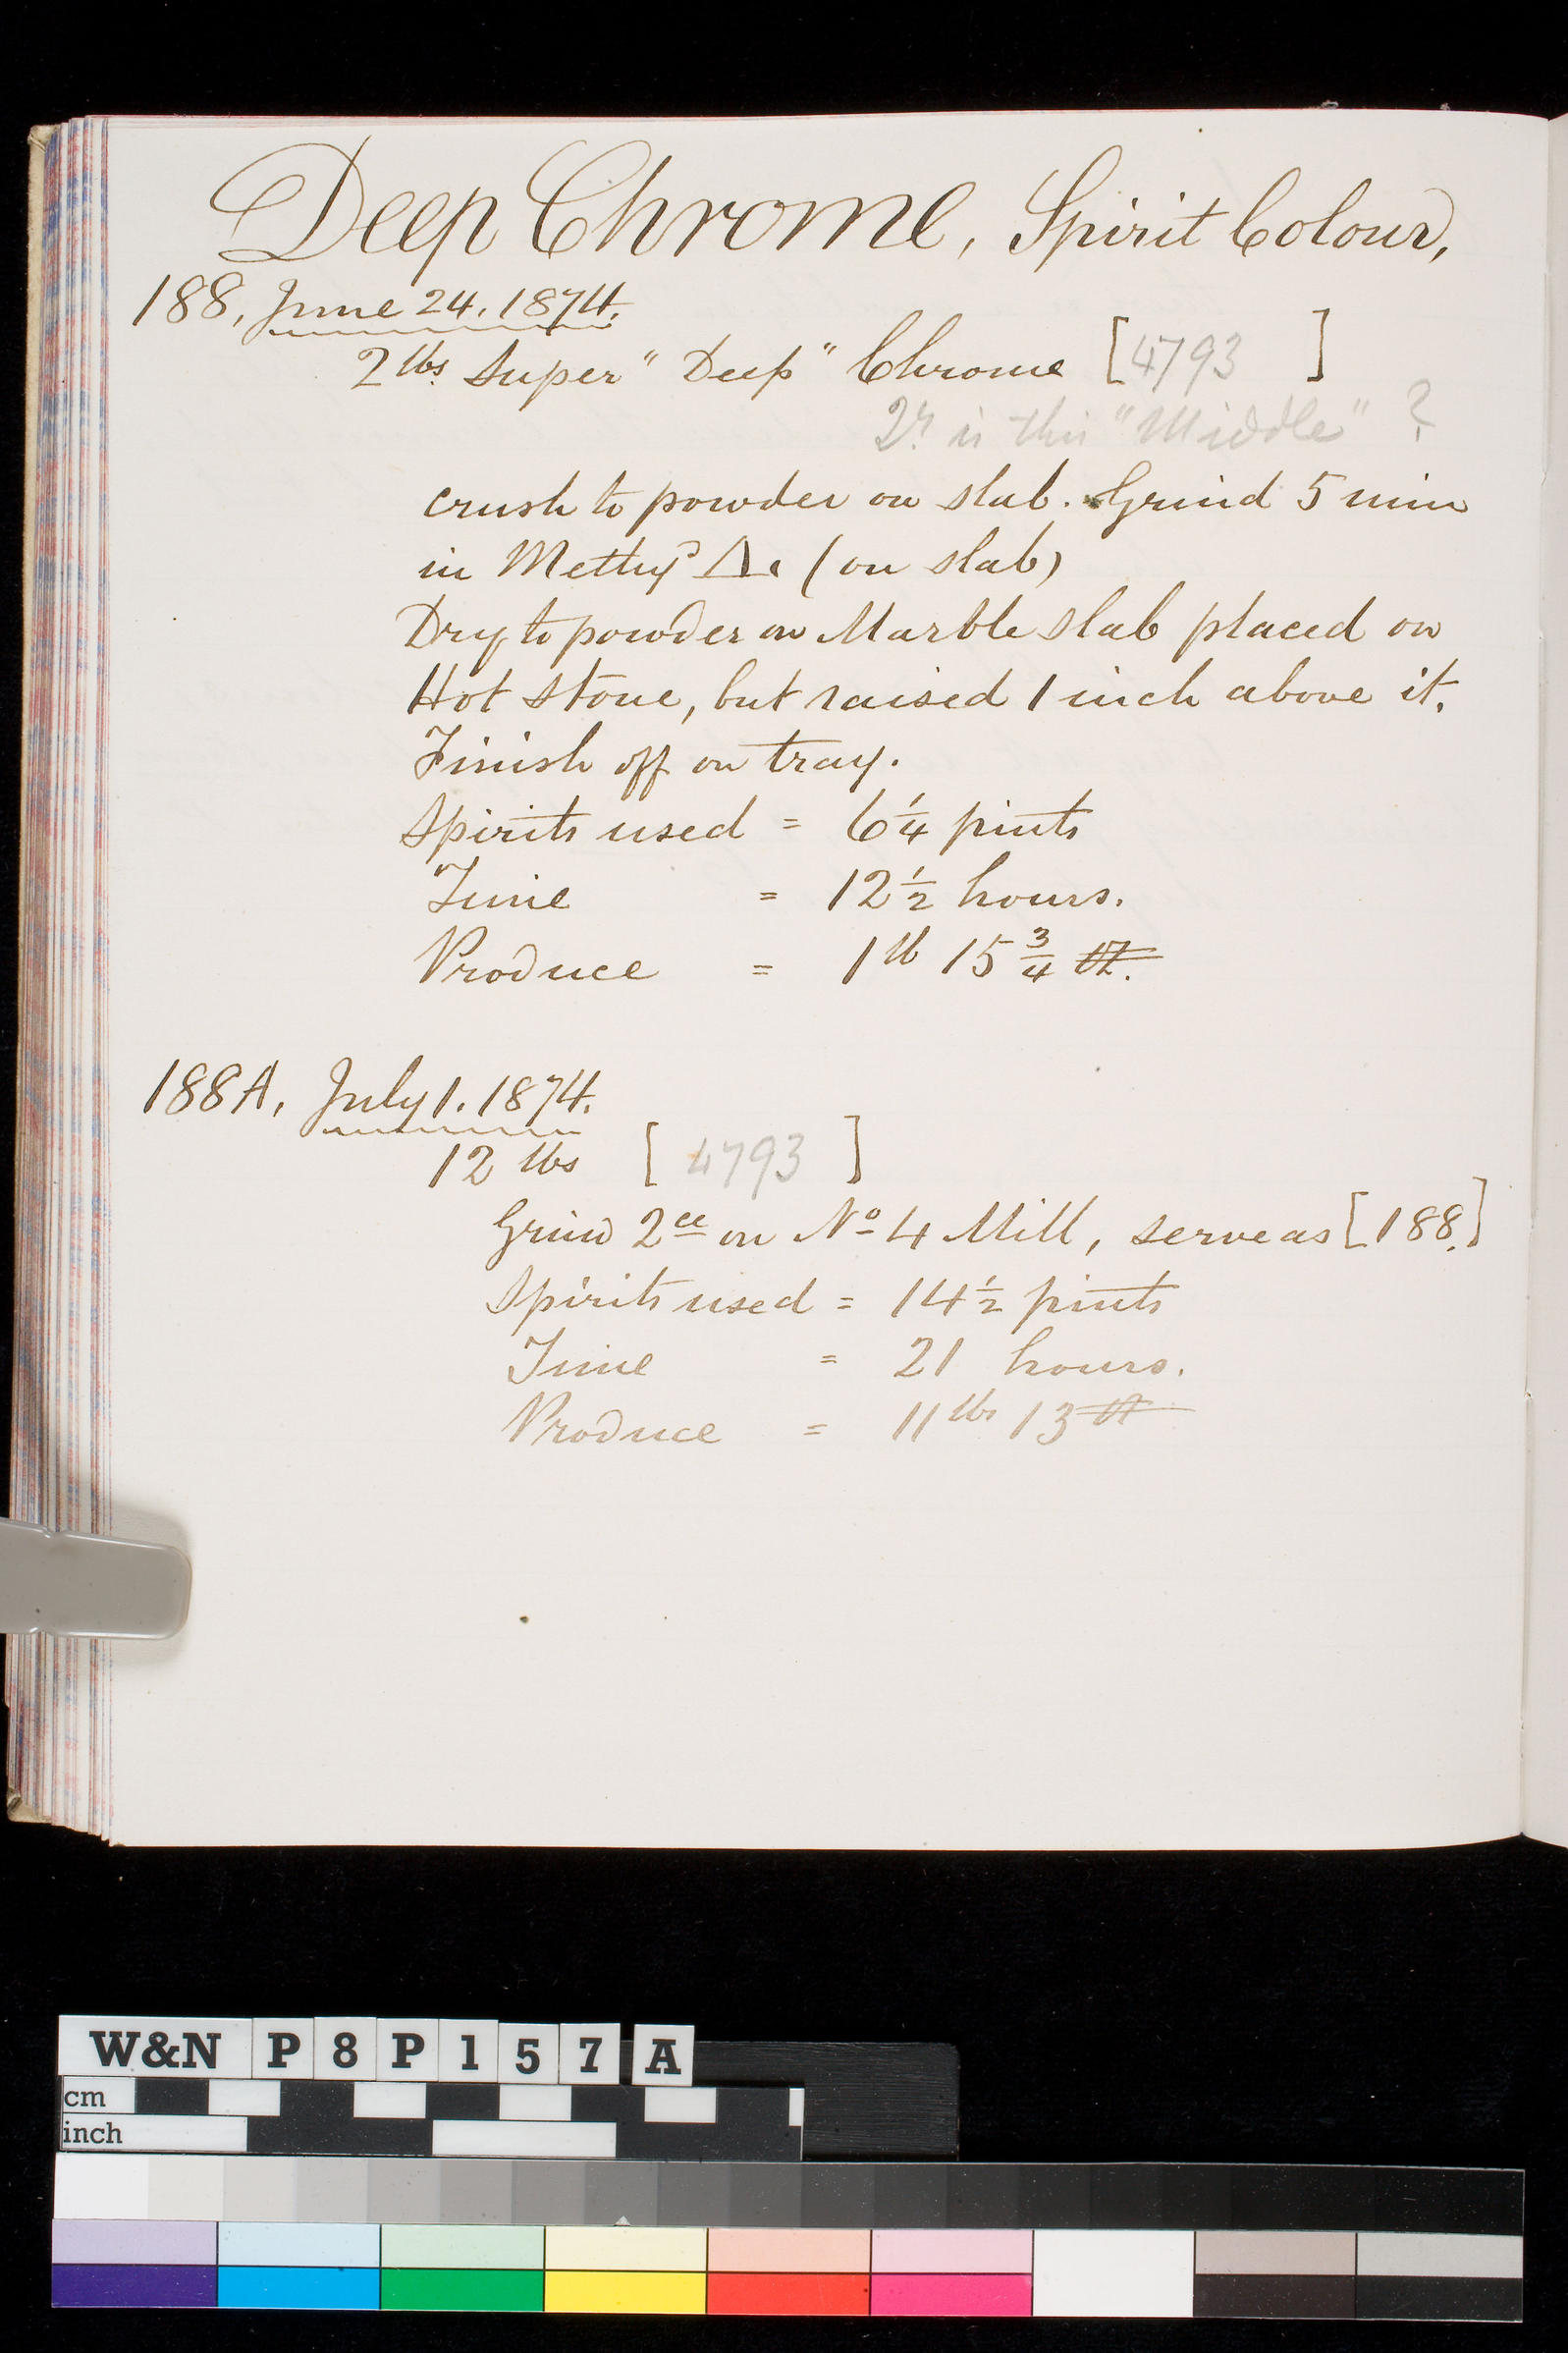 Deep Chrome, Spirit Colour,
188, June 24. 1874.
2 lbs Super "Deep" Chrome [4793]
is this "Middle" ?
crush to powder on slab. Grind 5 min
in Δ. (on slab)
Dry to powder on Marble slab placed on
Hot stone, but raised 1 inch above it.
Finish off on tray.
Spirits used = 6 1/4 pints
Time = 12 1/2 hours.
Produce = 1 lb 15 3/4 oz.
188A, July 1. 1874.
12 lbs [4793]
Grind 2ce on No 4 Mill, serve as [188.]
Spirits used = 14 1/2 pints
Time = 21 hours.
Produce = 11 lbs 13 oz
W&N P8P157A
cm
inch